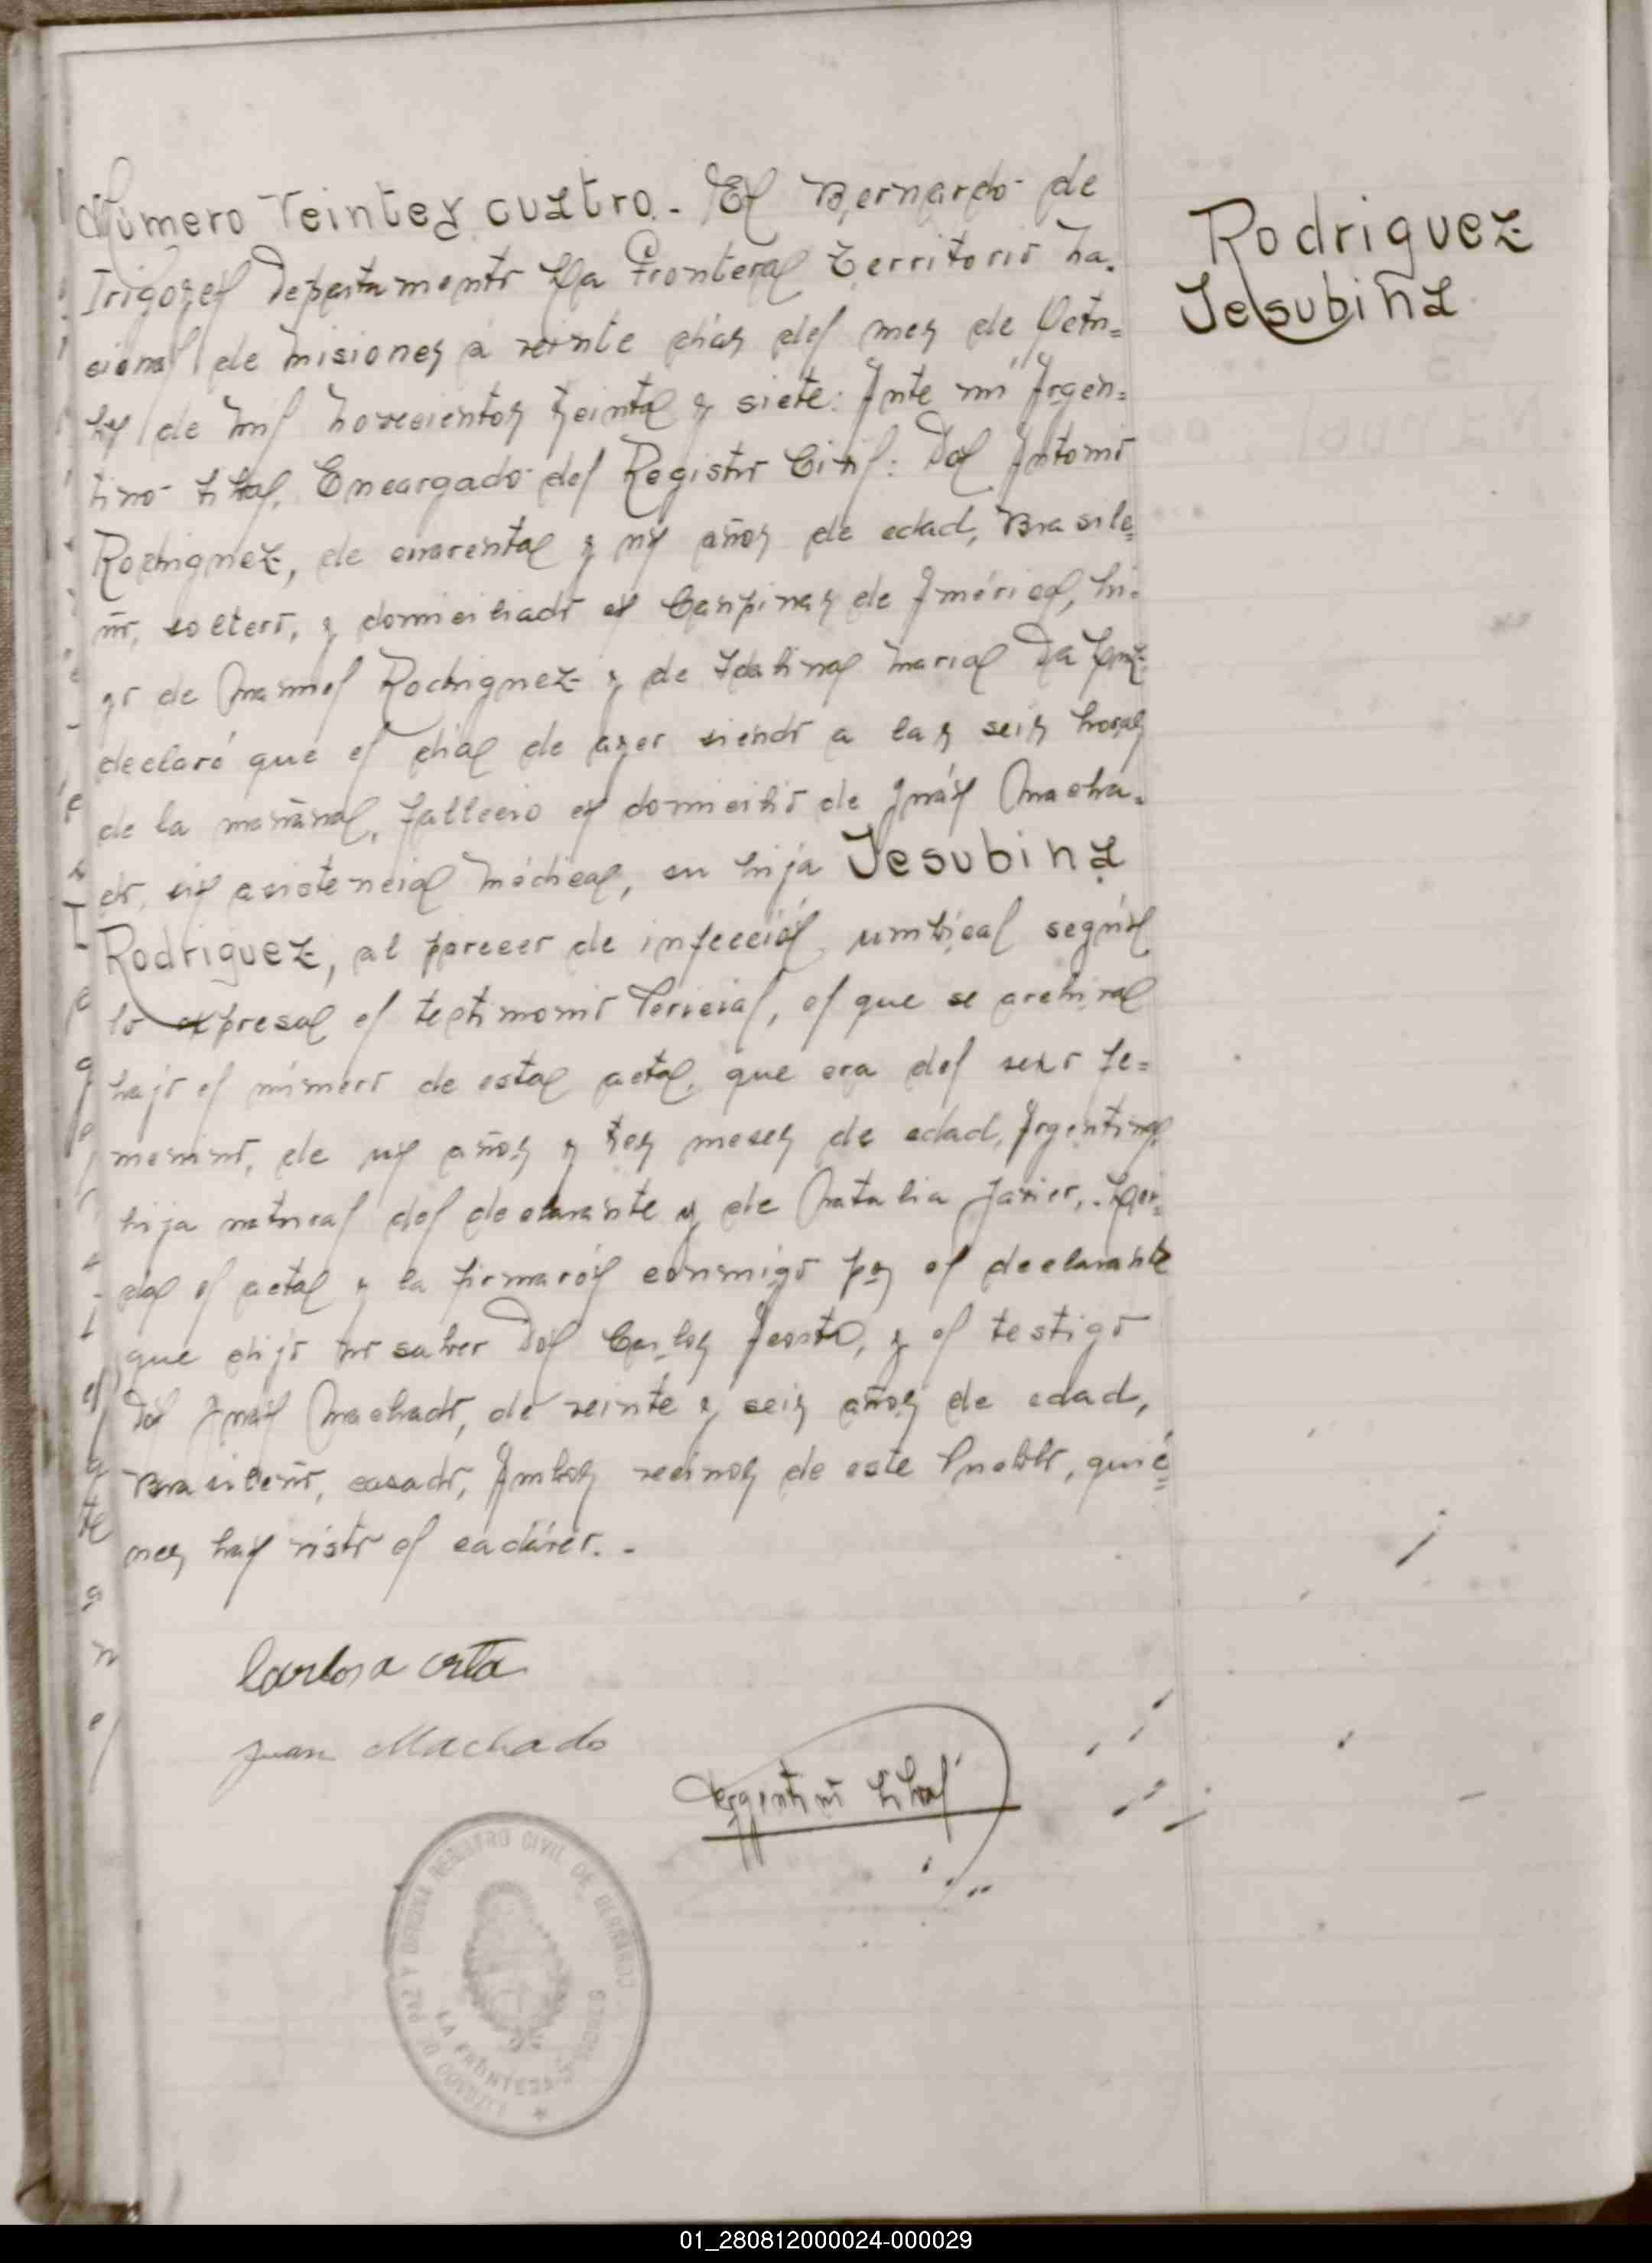 Número Veintey cuatro.- En Bernardo de
Irigoyen Departamento La Frontera Territorio Na-
cional de Misiones a veinte dias del mes de Octu=
bre de mil novecientos treinta y siete: Ante mi Argen=
tino Encargado del Registro Civil: Don Antonio
Rodriguez, de cuarenta y un años de edad, Brasile=
ño, soltero, y domiciliado en Campinas de América, hi-
jo de Manuel Rodriguez y de Idalina Maria Da Cruz
declaró que el dia de ayer siendo a las seis horas
de la mañana, fallecio en domicilio de Juan Macha-
do, sin asistencia Médica, su hija Jesubina
Rodriguez, al parecer de infección umbical según
lo expresa el testimonio Policial, el que se archiva
bajo el número de esta acta, que era del sexo fe=
menino, de un años y tres meses de edad, Argentina,
hija natural del declarante y de Natalia Javier,. Leí-
da el acta y la firmarón conmigo por el declarante
que dijo no saber Don Carlos Acosta, y el testigo
Don Juan Machado, de veinte y seis años de edad,
Brasileño, casado, Ambos vecinos de este Pueblo, quié=
nes han visto el cadáver.-
Rodriguez
Jesubina
Carlos acosta
Juan Machado
Argentino
JUZGADO DE PAZ Y OFICINA REGISTRO CIVIL DE BERNARDO
LA FRONTERA MISIONES
01_280812000024-000029